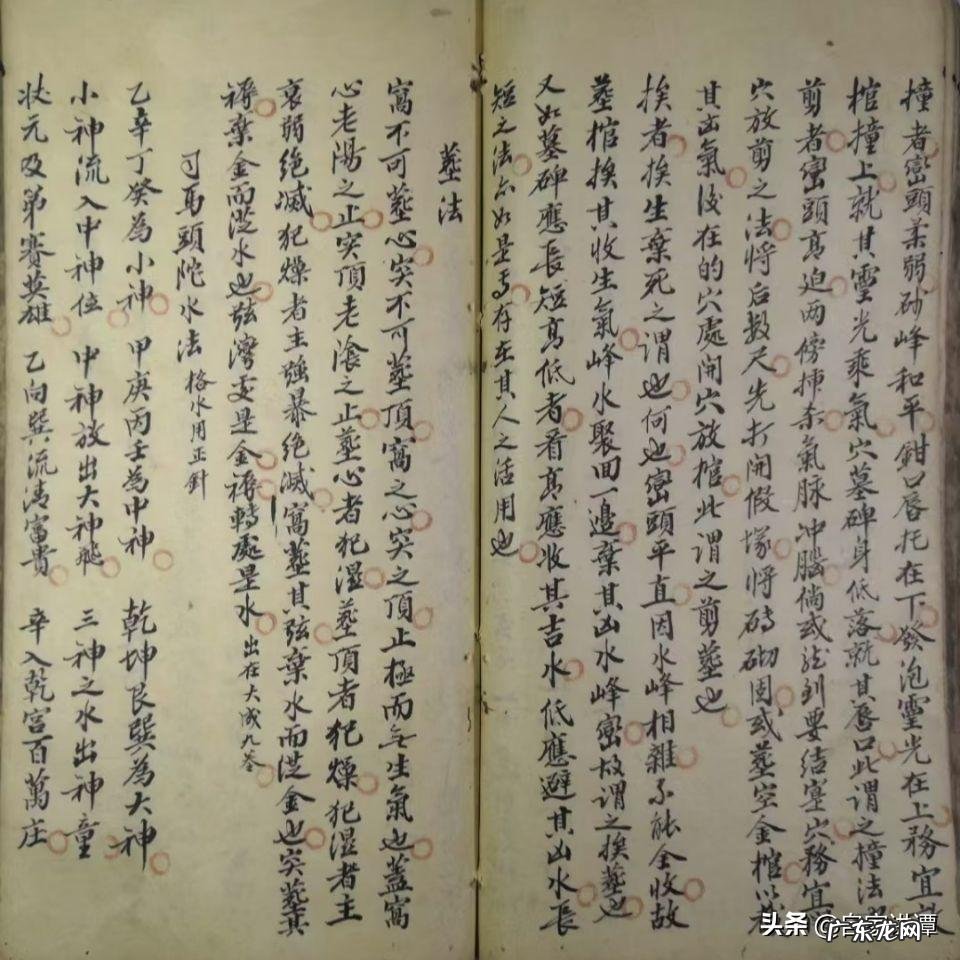 撞者巒頭柔弱砂峰和平鉗口唇托在下發泡靈光在上務宜放
棺撞上就其靈光乘氣穴墓碑身低落就其唇口此謂之撞法也
剪者巒頭高迫两傍揷杀氣脉冲腦倘或龙到要結塟穴務宜
穴放剪之法將后数尺先打開假塚將磚砌固或塟空金棺以
其出氣後在的穴處開穴放棺此謂之剪塟也
挨者挨生棄死之谓也何也巒頭平直因水峰相雜不能全收故
塟棺挨其收生氣峰水聚囬一邉棄其凶水峰巒故謂之挨塟也
又如墓碑應長短高低者看高應收其吉水低應避其凶水長
短之法亦如是焉存在其人之活用也
塟法
窩不可塟心突不可塟頂窩之心突之頂止極而无生氣也蓋窩
心老陽之止突頂老陰之止塟心者犯濕塟頂者犯燥犯濕者主
衰弱绝滅犯燥者主強暴绝滅窩塟其弦棄水而涖金也突塟其
褥棄金而涖水也弦灣交是金褥轉處是水出在大成九卷
司馬頭陀水法 格水用正針
乙辛丁癸為小神 甲庚丙壬為中神 乾坤艮巽為大神
小神流入中神位 中神放出大神飛 三神之水出神童
状元及弟賽英雄 乙向巽流清富貴 辛入乾宫百萬庄
头条
广东龙网